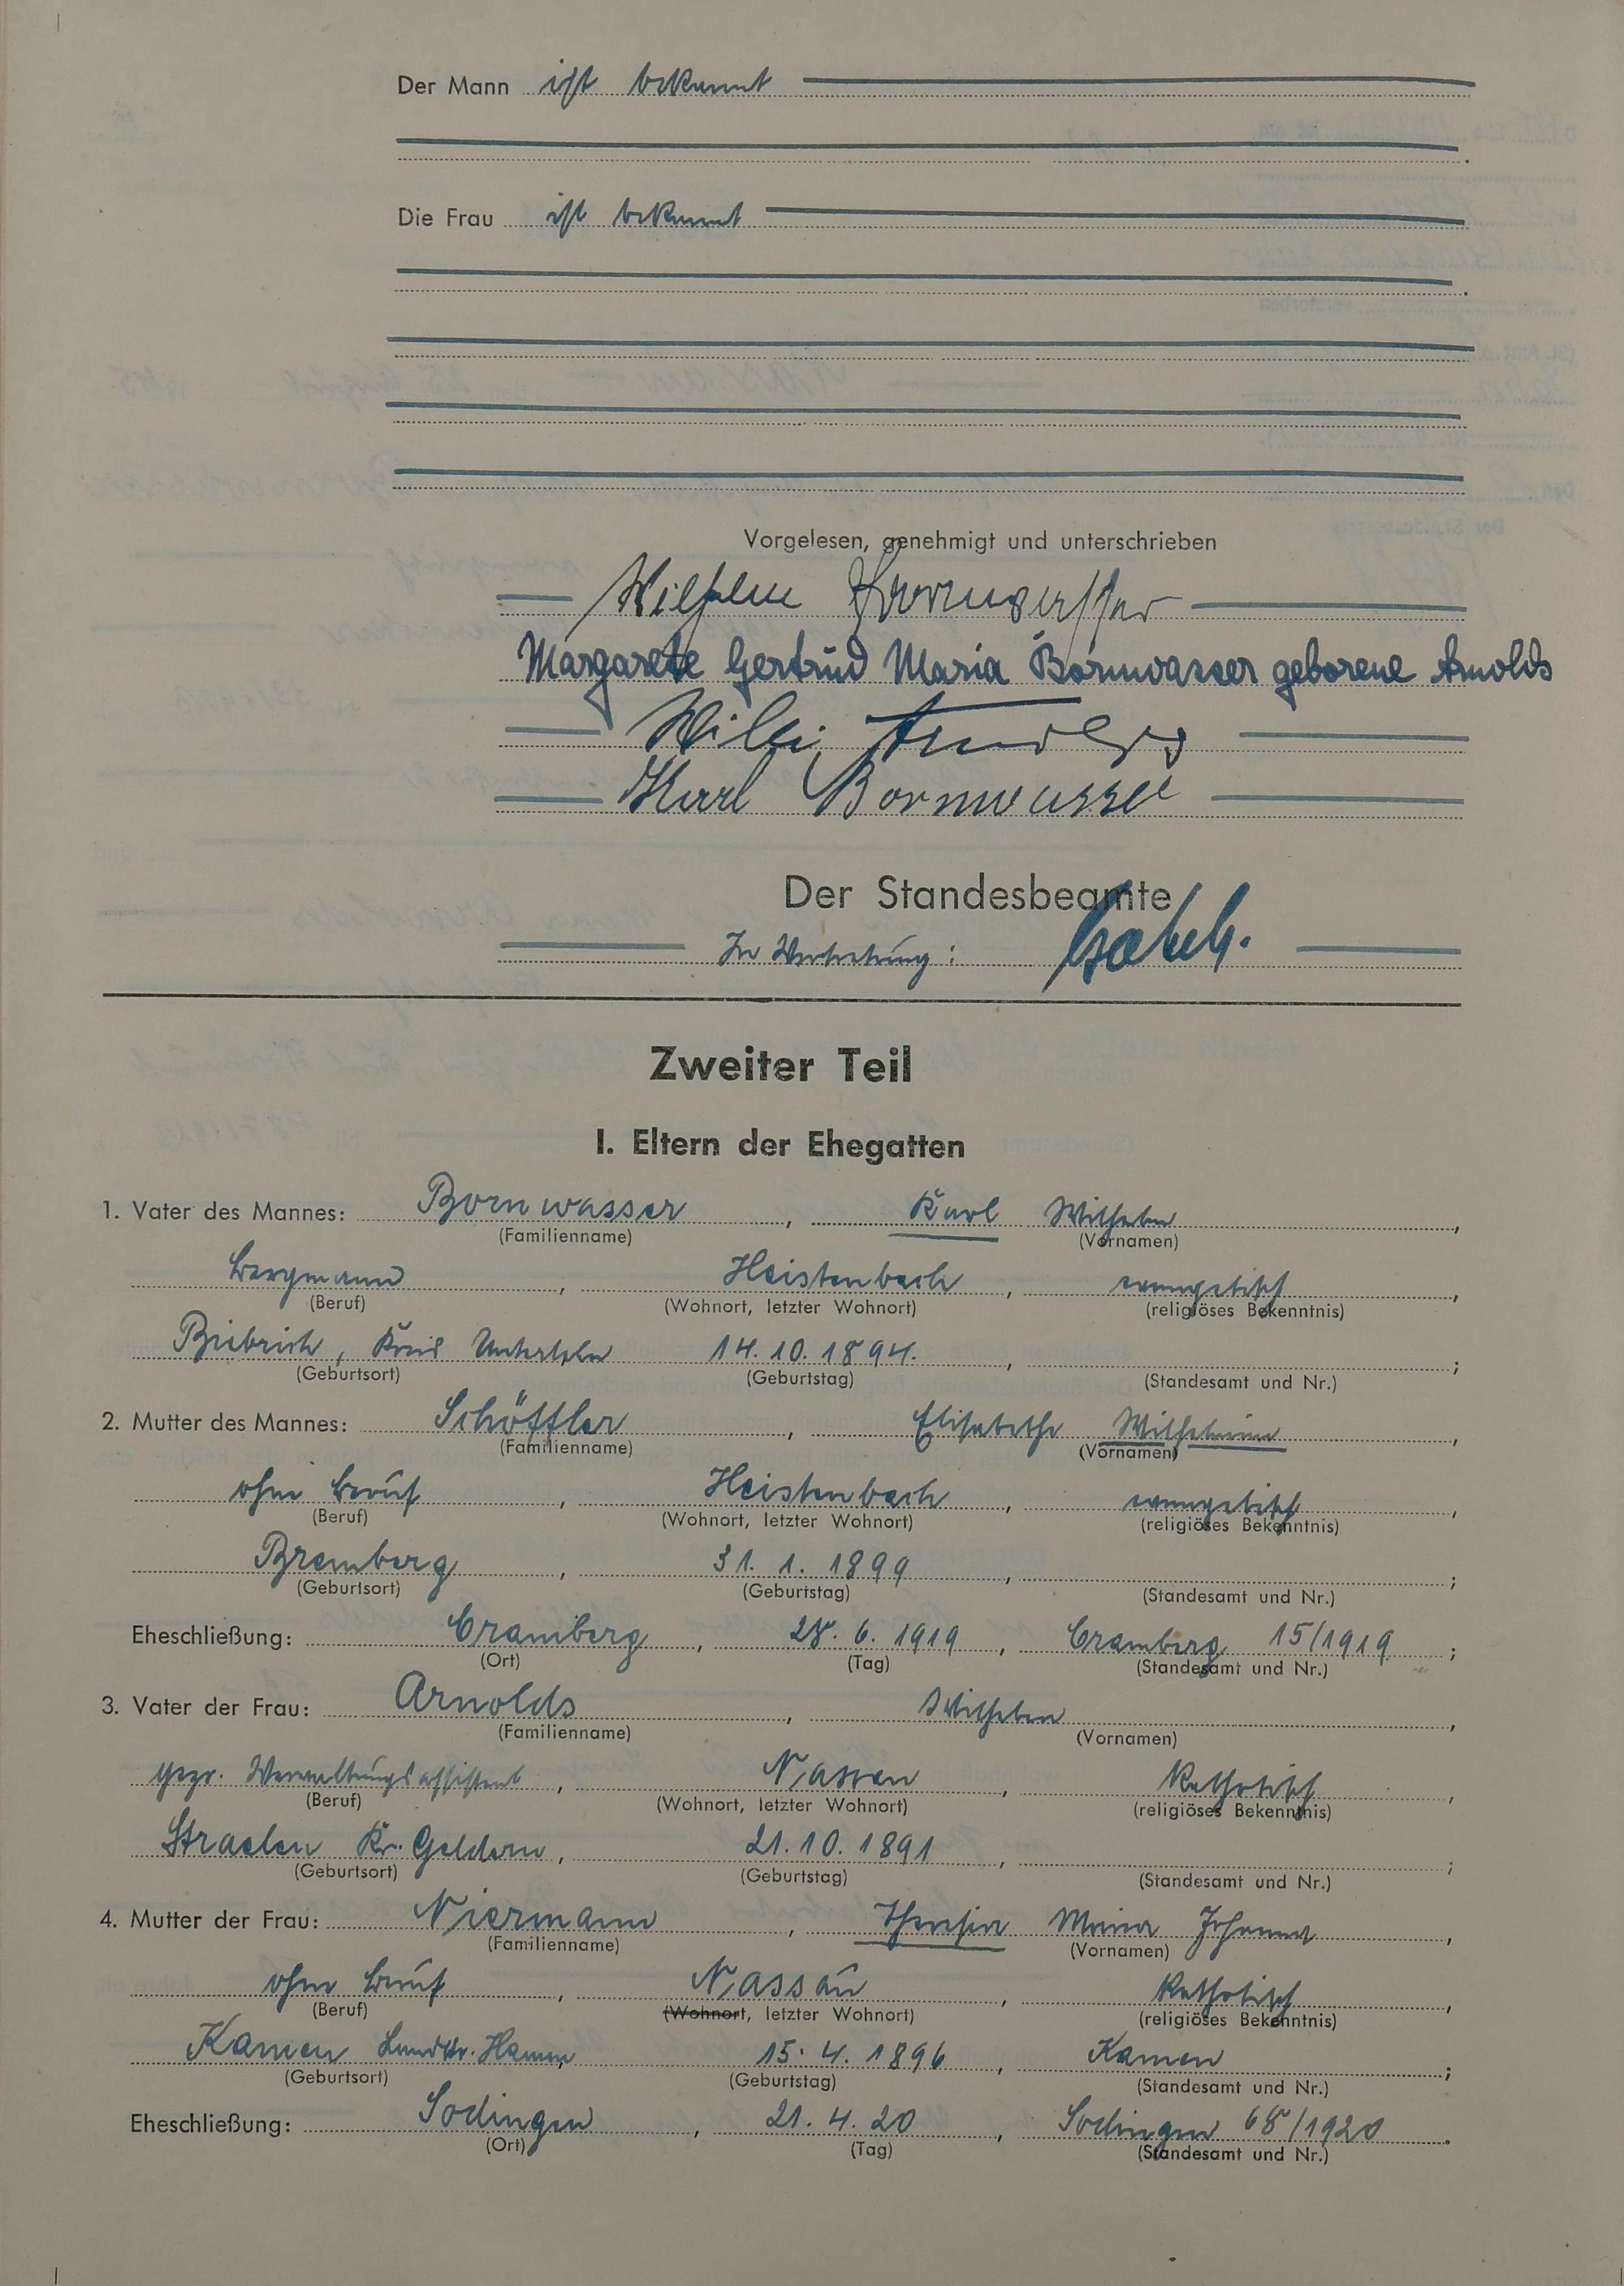 Der Mann ist bekannt
Die Frau ist bekannt
Vorgelesen, genehmigt und unterschrieben
Wilhelm Bornwasser
Margarete Gertrud Maria Bornwasser geborene Arnolds
Willi Arnolds
Karl Bornwasser
Der Standesbeamte
In Vertretung:
Zweiter Teil
I. Eltern der Ehegatten
1. Vater des Mannes: Bornwasser, Karl Wilhelm,
(Familienname) (Vornamen)
Bergmann, Heistenbach, evangelisch,
(Beruf) (Wohnort, letzter Wohnort) (religiöses Bekenntnis)
Biebrich, Kreis Unterlahn 14.10.1894. , ;
(Geburtsort) (Geburtstag) (Standesamt und Nr.)
2. Mutter des Mannes: Schöffler, Elisabethe Wilhelmine,
(Familienname) (Vornamen)
ohne Beruf, Heistenbach, evangelisch,
(Beruf) (Wohnort, letzter Wohnort) (religiöses Bekenntnis)
Bremberg, 31. 1. 1899, ;
(Geburtsort) (Geburtstag) (Standesamt und Nr.)
Eheschließung: Cramberg, 28. 6. 1919, Cramberg 15/1919;
(Ort) (Tag) (Standesamt und Nr.)
3. Vater der Frau: Arnolds, Wilhelm,
(Familienname) (Vornamen)
Verwaltungsassistent, Nassau, katholisch,
(Beruf) (Wohnort, letzter Wohnort) (religiöses Bekenntnis)
Straelen Kr. Geldern, 21.10.1891, ;
(Geburtsort) (Geburtstag) (Standesamt und Nr.)
4. Mutter der Frau: Niermann, Johanna,
(Familienname) (Vornamen)
ohne Beruf, Nassau, katholisch,
(Beruf) (Wohnort, letzter Wohnort) (religiöses Bekenntnis)
Kamen Landkr. Hamm 15. 4. 1896, Kamen;
(Geburtsort) (Geburtstag) (Standesamt und Nr.)
Eheschließung: Sodingen, 21. 4. 20, Sodingen 68/1920.
(Ort) (Tag) (Standesamt und Nr.)